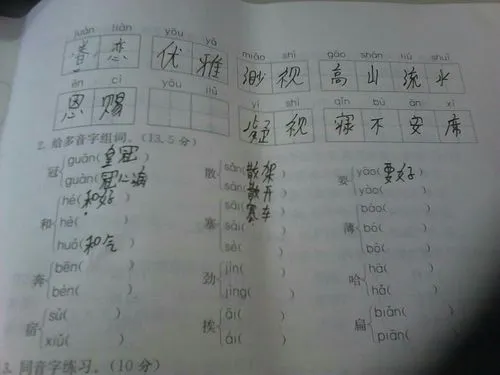 juàn liàn yōu yǎ
眷 恋 优 雅 miǎo shì gāo shān liú shuǐ
ēn cì yōu jiǔ 渺 视 高 山 流 水
恩 赐 yí shì qǐn bù ān xí
疑 视 寝 不 安 席
2. 给多音字组词。(13.5分)
冠 guān(皇冠 散 sǎn(散架 要 yào(要好
guàn(冠心病 sàn(散开 yāo(
和 hé(和好 塞 sāi(塞车 薄 báo(
hè( sài( bó(
huó(和气 sè( bò(
奔 bēn( ) 劲 jìn( ) 哈 hā( )
bèn( ) jìng( ) hǎ( )
宿 sù( ) 挨 āi( ) 扁 biǎn( )
xiǔ( ) ái( ) piān( )
3. 同音字练习。(10分)